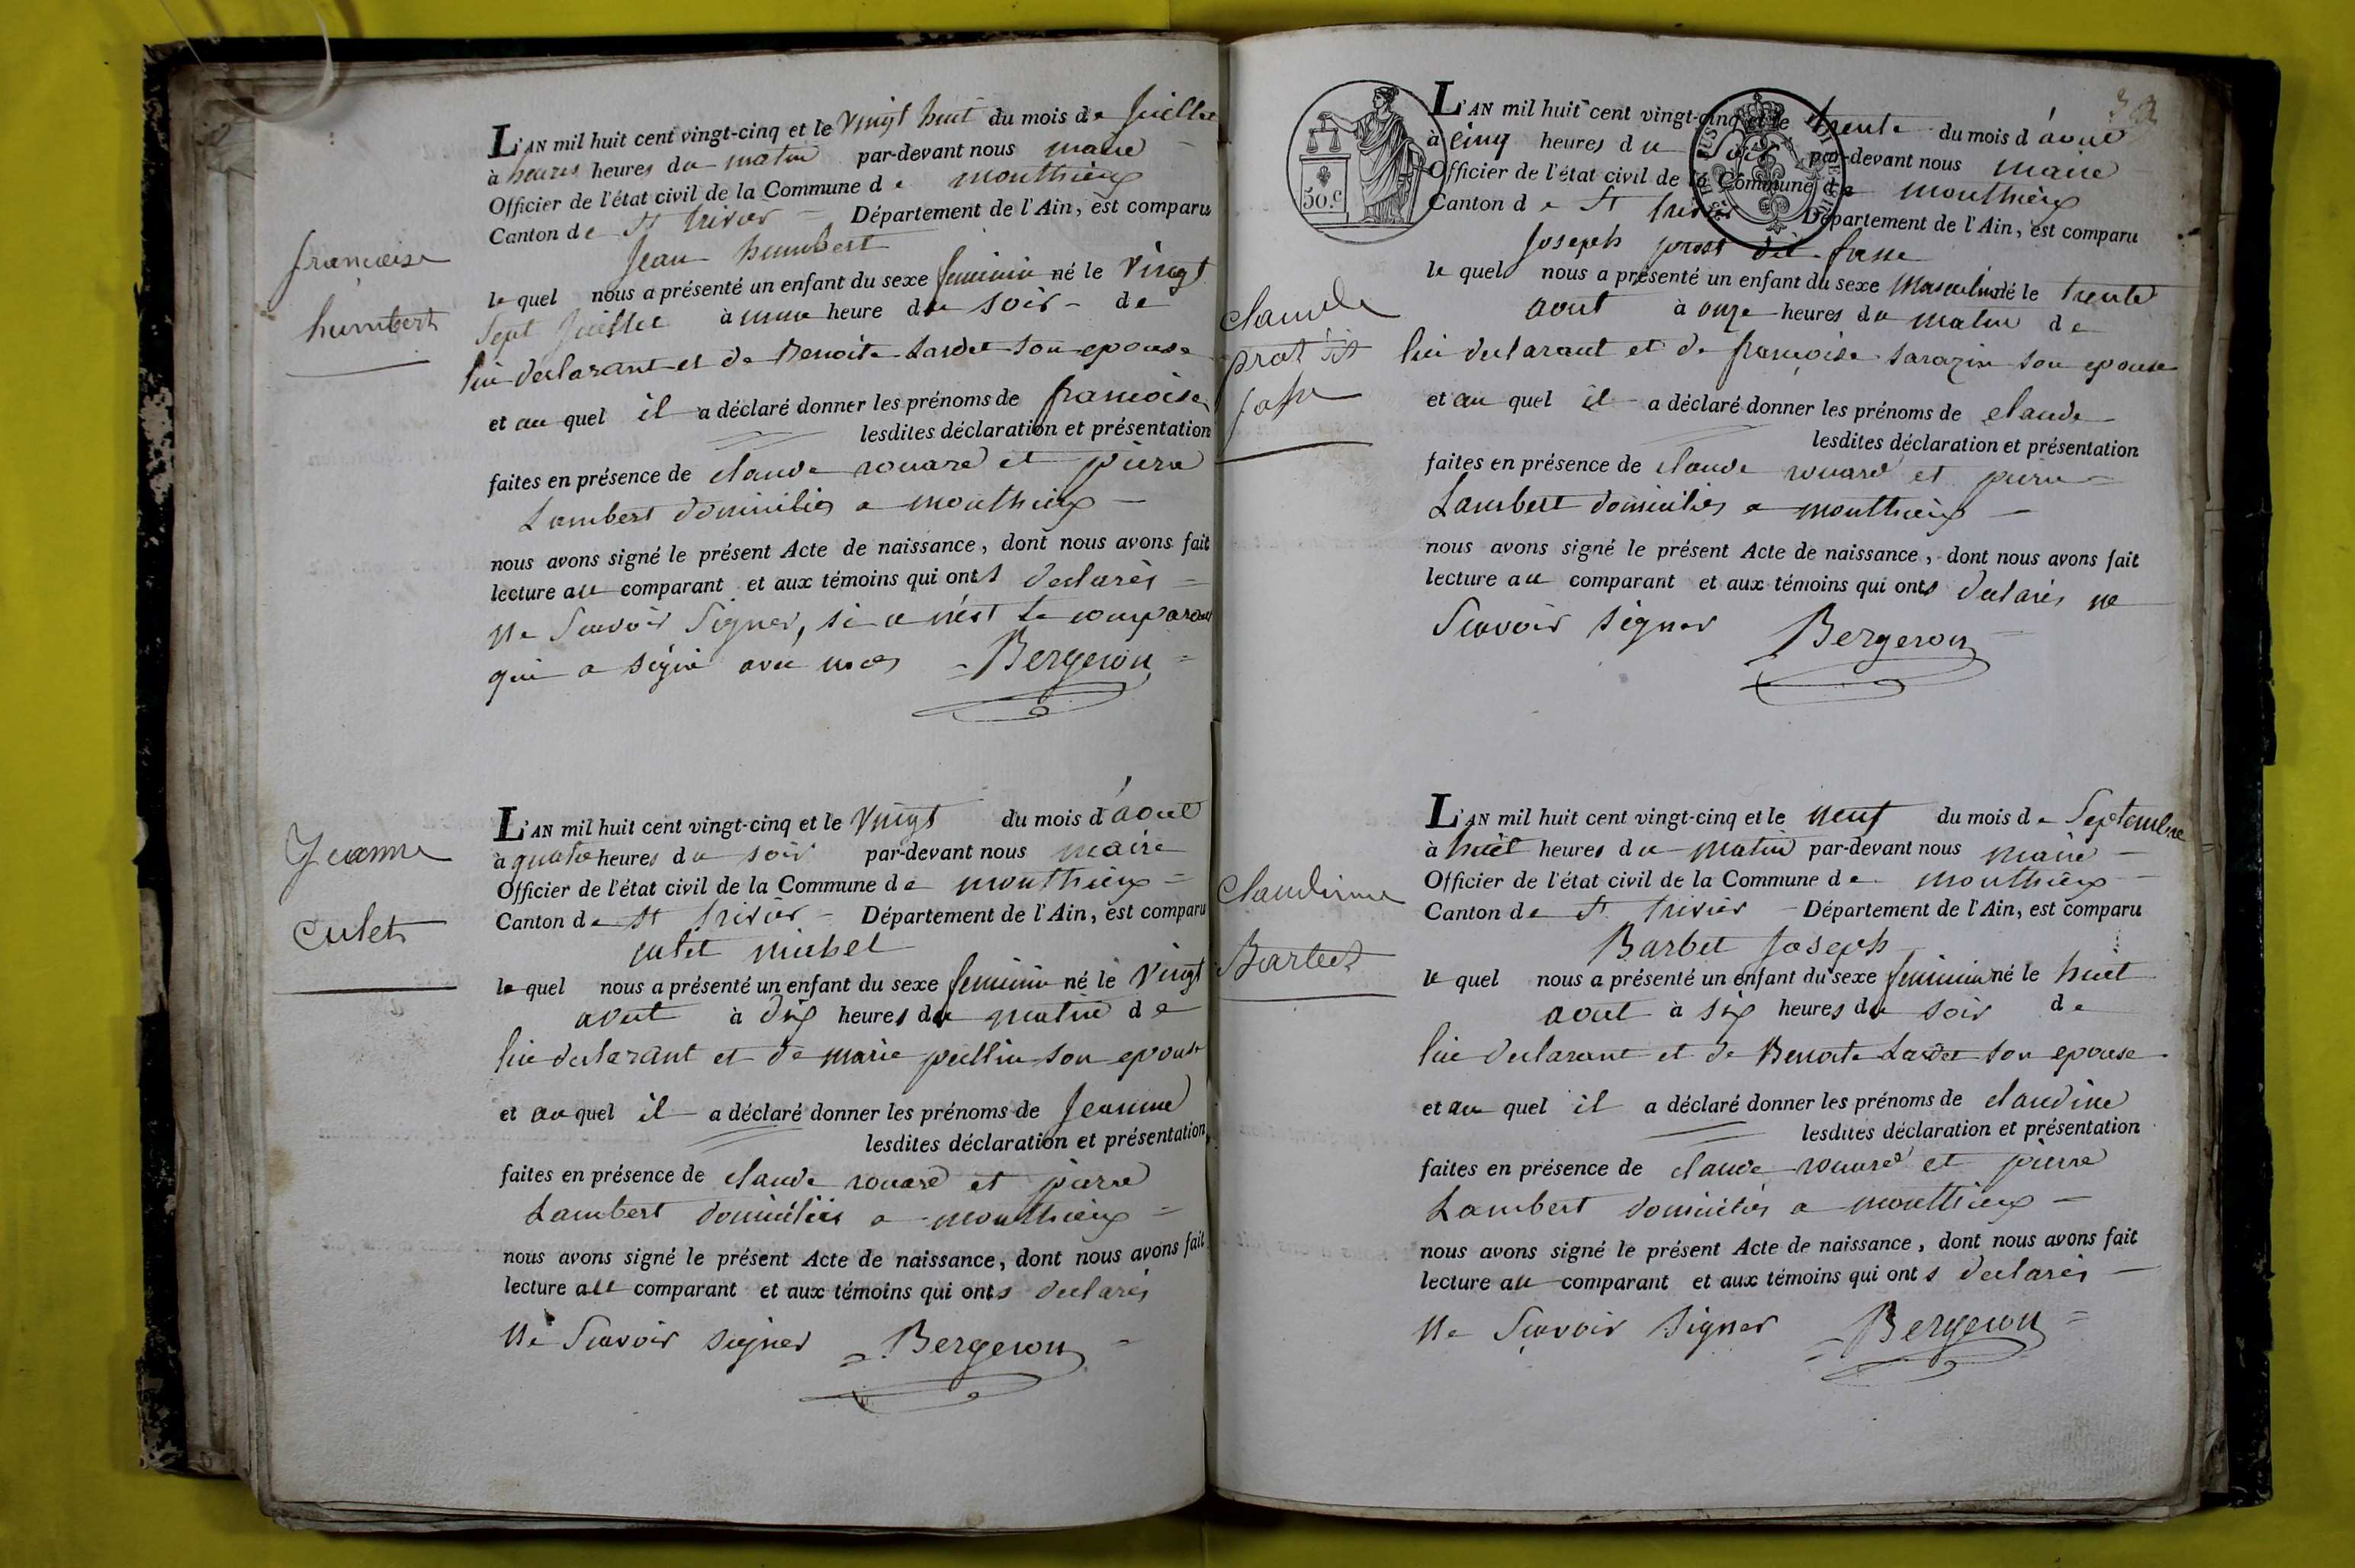 françoise
humbert
L'AN mil huit cent vingt-cinq et le Vingt huit du mois de Juillet
à heures heures du matin par-devant nous maire
Officier de l'état civil de la Commune de monthieux
Canton de St trivier Département de l'Ain, est comparu
Jean humbert
le quel nous a présenté un enfant du sexe feminin né le Vingt
Sept Juillet à une heure du soir de
lui declarant et de Benoite Lardet son epouse
et au quel il a déclaré donner les prénoms de françoise
lesdites déclaration et présentation
faites en présence de claude rouard et pierre
Lambert domiciliés a monthieux
nous avons signé le présent Acte de naissance, dont nous avons fait
lecture au comparant et aux témoins qui onts declarés
Ne Scavoir Signer, si ce n'est Le comparant
qui a signé avec nous Bergeron
Jeanne
Culet
L'AN mil huit cent vingt-cinq et le Vingt du mois d'aout
à quatre heures du soir par-devant nous maire
Officier de l'état civil de la Commune de monthieux
Canton de St trivier Département de l'Ain, est comparu
culet michel
le quel nous a présenté un enfant du sexe feminin né le Vingt
aout à dix heures du matin de
lui declarant et de marie son epouse
et au quel il a déclaré donner les prénoms de Jeanne
lesdites déclaration et présentation
faites en présence de claude rouard et pierre
Lambert domiciliés a monthieux
nous avons signé le présent Acte de naissance, dont nous avons fait
lecture au comparant et aux témoins qui onts declarés
Ne Scavoir signer Bergeron
50.c
claude
prost dit
L'AN mil huit cent vingt-cinq et le trente du mois d'aout
à cinq heures du Soir par-devant nous maire
Officier de l'état civil de la Commune de monthieux
Canton de St trivier Département de l'Ain, est comparu
Joseph prost dit
le quel nous a présenté un enfant du sexe masculin né le trente
aout à onze heures du matin de
lui declarant et de françoise sarazin son epouse
et au quel il a déclaré donner les prénoms de claude
lesdites déclaration et présentation
faites en présence de claude rouard et pierre
Lambert domiciliés a monthieux
nous avons signé le présent Acte de naissance, dont nous avons fait
lecture au comparant et aux témoins qui onts declarés ne
Scavoir signer Bergeron
Claudinne
Barbet
L'AN mil huit cent vingt-cinq et le neuf du mois de Septembre
à huit heures du matin par-devant nous maire
Officier de l'état civil de la Commune de monthieux
Canton de St trivier Département de l'Ain, est comparu
Barbet Joseph
le quel nous a présenté un enfant du sexe feminin né le huit
aout à six heures du soir de
lui declarant et de Benoite Lardet son epouse
et au quel il a déclaré donner les prénoms de claudine
lesdites déclaration et présentation
faites en présence de claude rouard et pierre
Lambert domiciliés a monthieux
nous avons signé le présent Acte de naissance, dont nous avons fait
lecture au comparant et aux témoins qui onts declarés
Ne Scavoir signer Bergeron